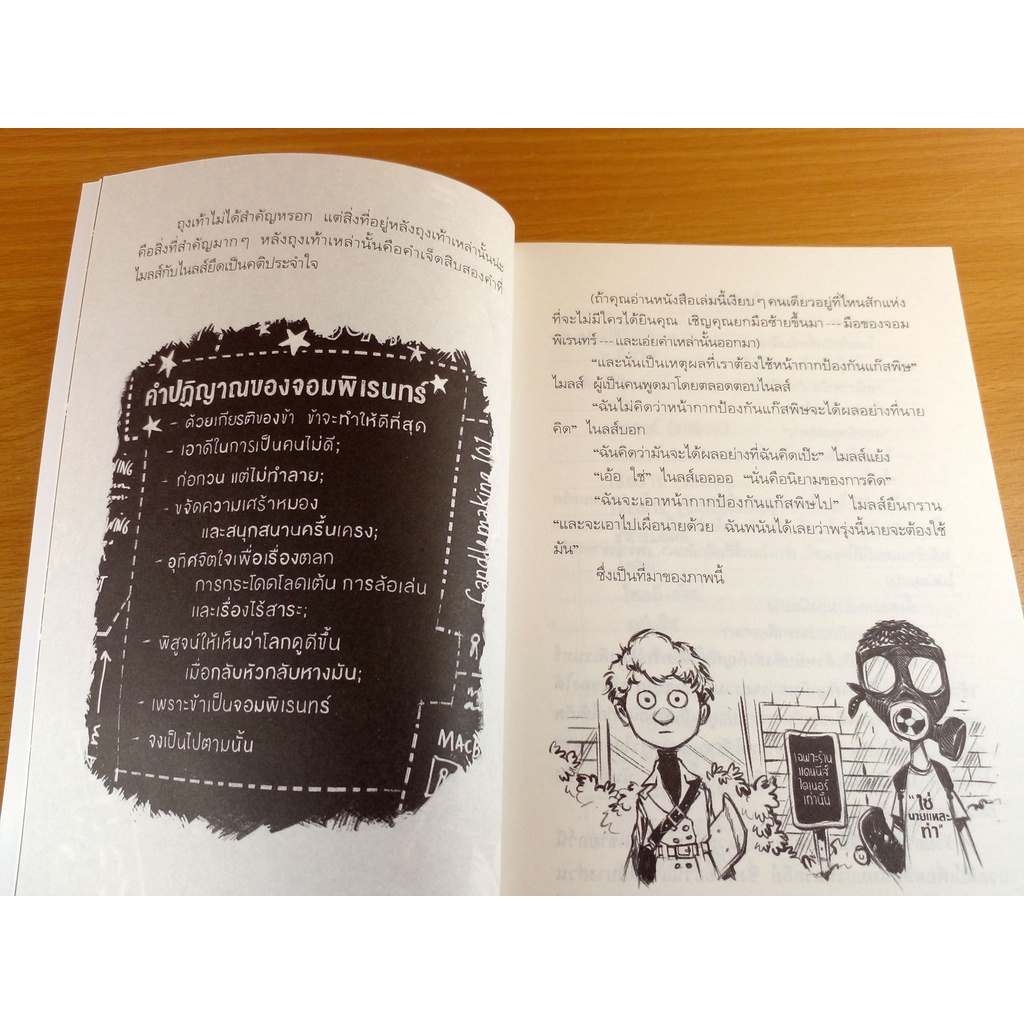 ถุงเท้าไม่ได้สำคัญหรอก แต่สิ่งที่อยู่หลังถุงเท้าเหล่านั้นน่ะ
คือสิ่งที่สำคัญมากๆ หลังถุงเท้าเหล่านั้นคือคำเจ็ดสิบสองคำที่
ไมลส์กับไนลส์ยึดเป็นคติประจำใจ
คำปฏิญาณของจอมพิเรนทร์
- ด้วยเกียรติของข้า ข้าจะทำให้ดีที่สุด
- เอาดีในการเป็นคนไม่ดี;
- ก่อกวน แต่ไม่ทำลาย;
- ขจัดความเศร้าหมอง
และสนุกสนานครื้นเครง;
- อุทิศจิตใจเพื่อเรื่องตลก
การกระโดดโลดเต้น การล้อเล่น
และเรื่องไร้สาระ;
- พิสูจน์ให้เห็นว่าโลกดูดีขึ้น
เมื่อกลับหัวกลับหางมัน;
- เพราะข้าเป็นจอมพิเรนทร์
- จงเป็นไปตามนั้น
Candlemaking 101
(ถ้าคุณอ่านหนังสือเล่มนี้เงียบๆ คนเดียวอยู่ที่ไหนสักแห่ง
ที่จะไม่มีใครได้ยินคุณ เชิญคุณยกมือซ้ายขึ้นมา---มือของจอม
พิเรนทร์---และเอ่ยคำเหล่านั้นออกมา)
"และนั่นเป็นเหตุผลที่เราต้องใช้หน้ากากป้องกันแก๊สพิษ"
ไมลส์ ผู้เป็นคนพูดมาโดยตลอดตอบไนลส์
"ฉันไม่คิดว่าหน้ากากป้องกันแก๊สพิษจะได้ผลอย่างที่นาย
คิด" ไนลส์บอก
"ฉันคิดว่ามันจะได้ผลอย่างที่ฉันคิดเป๊ะ" ไมลส์แย้ง
"เอ้อ ใช่" ไนลส์เออออ "นั่นคือนิยามของการคิด"
"ฉันจะเอาหน้ากากป้องกันแก๊สพิษไป" ไมลส์ยืนกราน
"และจะเอาไปเผื่อนายด้วย ฉันพนันได้เลยว่าพรุ่งนี้นายจะต้องใช้
มัน"
ซึ่งเป็นที่มาของภาพนี้
เฉพาะร้าน
แดนนีส์
ไดเนอร์
เท่านั้น
"ใช่
นายแหละ
ทำ"